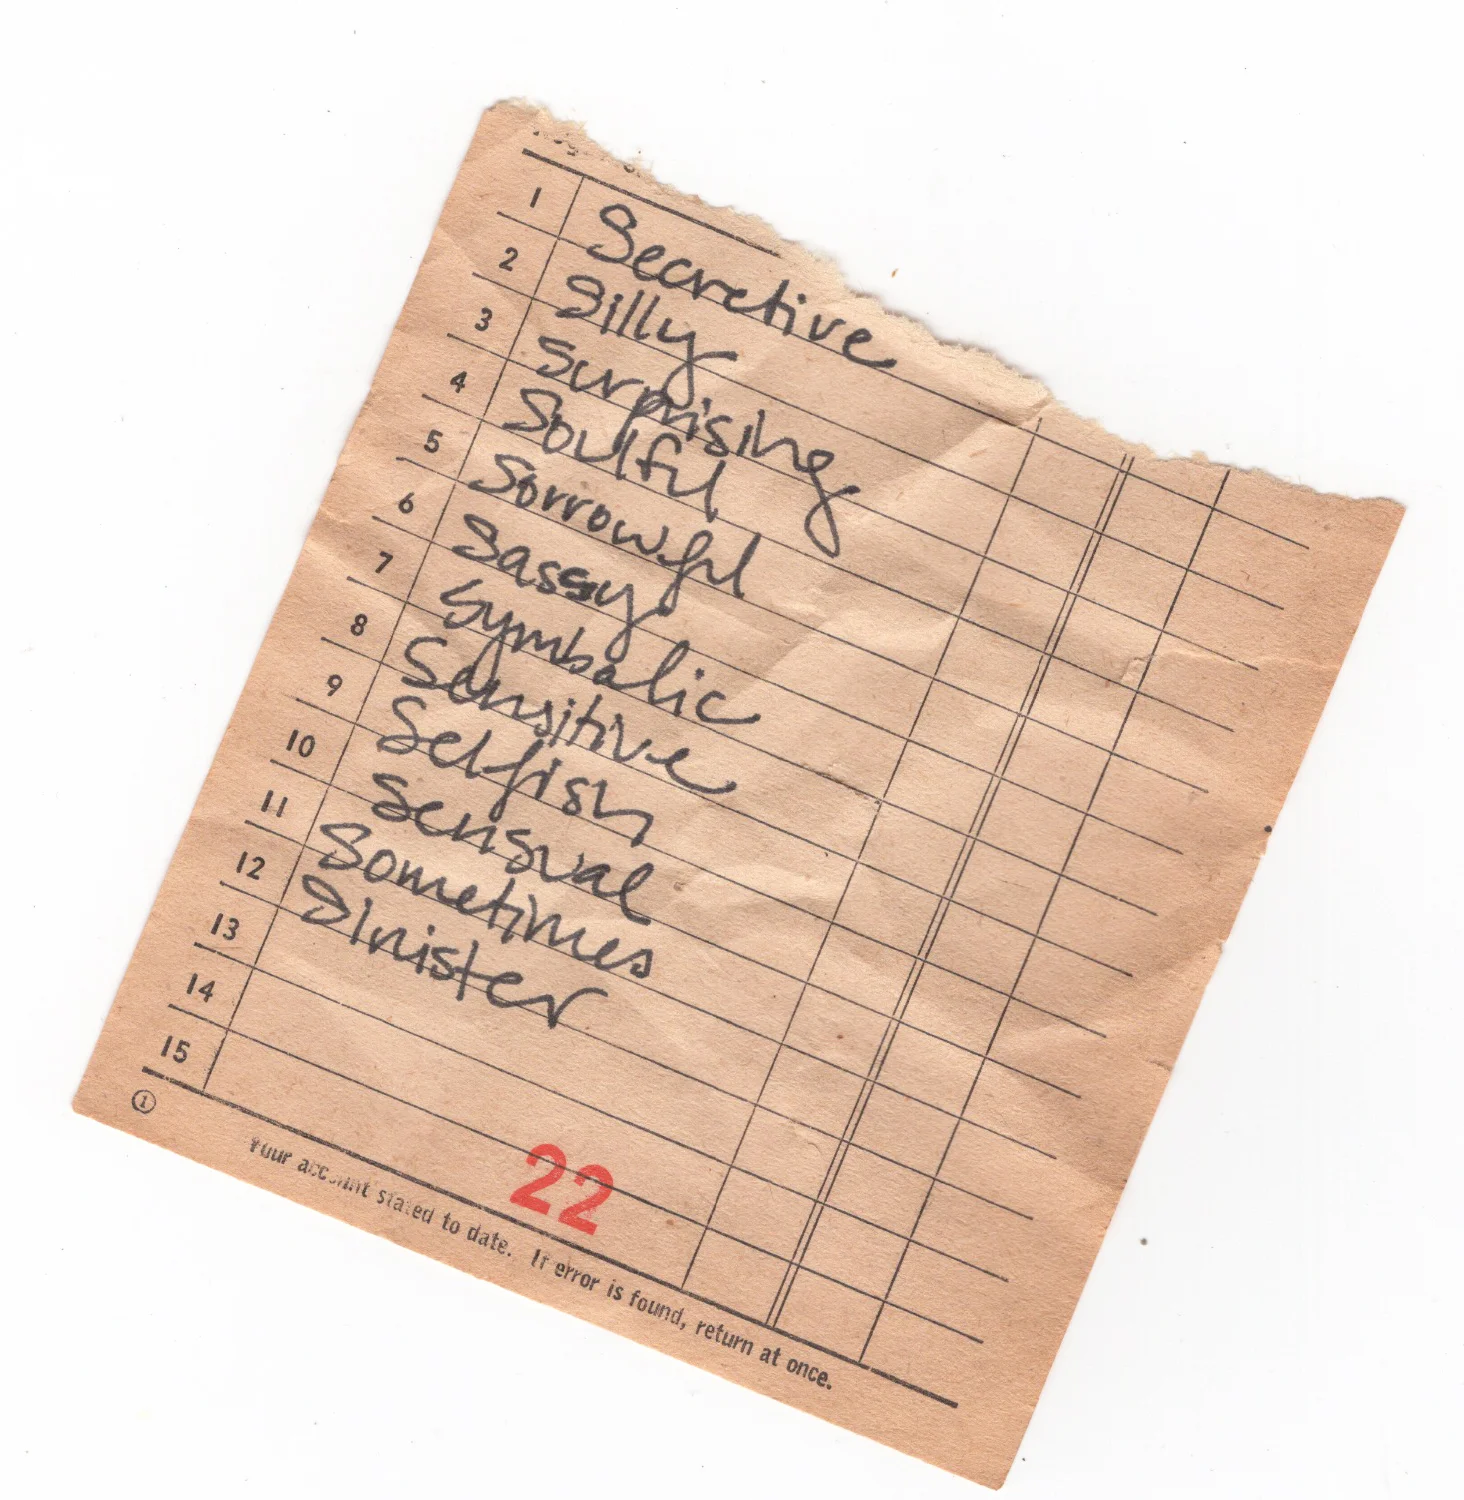 1 Secretive
2 Silly
3 Surprising
4 Soulful
5 Sorrowful
6 Sassy
7 Symbolic
8 Sensitive
9 Selfish
10 Sensual
11 Sometimes
12 Sinister
13
14
15
1
22
Your account stated to date. If error is found, return at once.